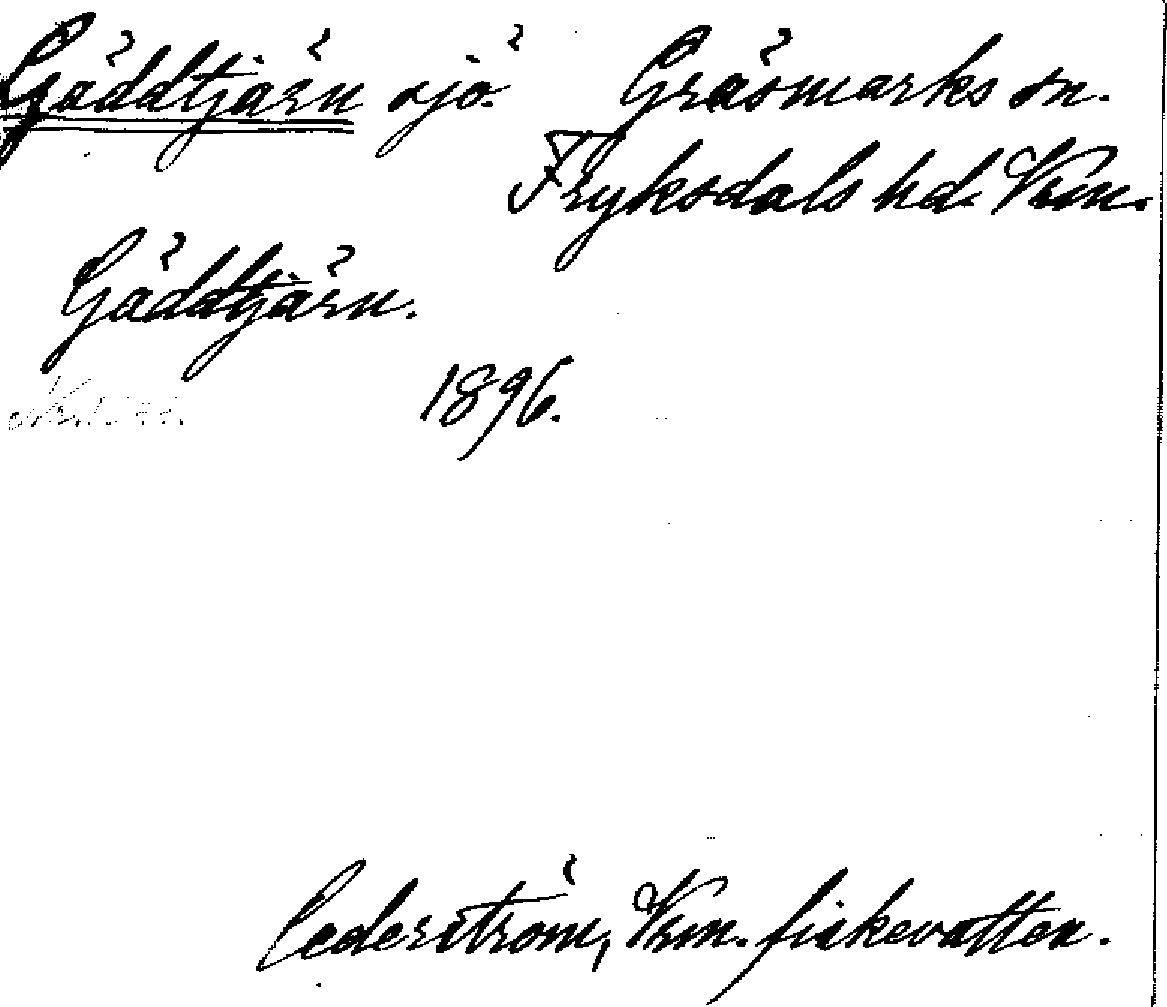 Gäddtjärn sjö. Gräsmarks sn.
Fryksdals hd. Vrm.
Gäddtjärn.
1896.
Cederström, Vrm. fiskevatten.